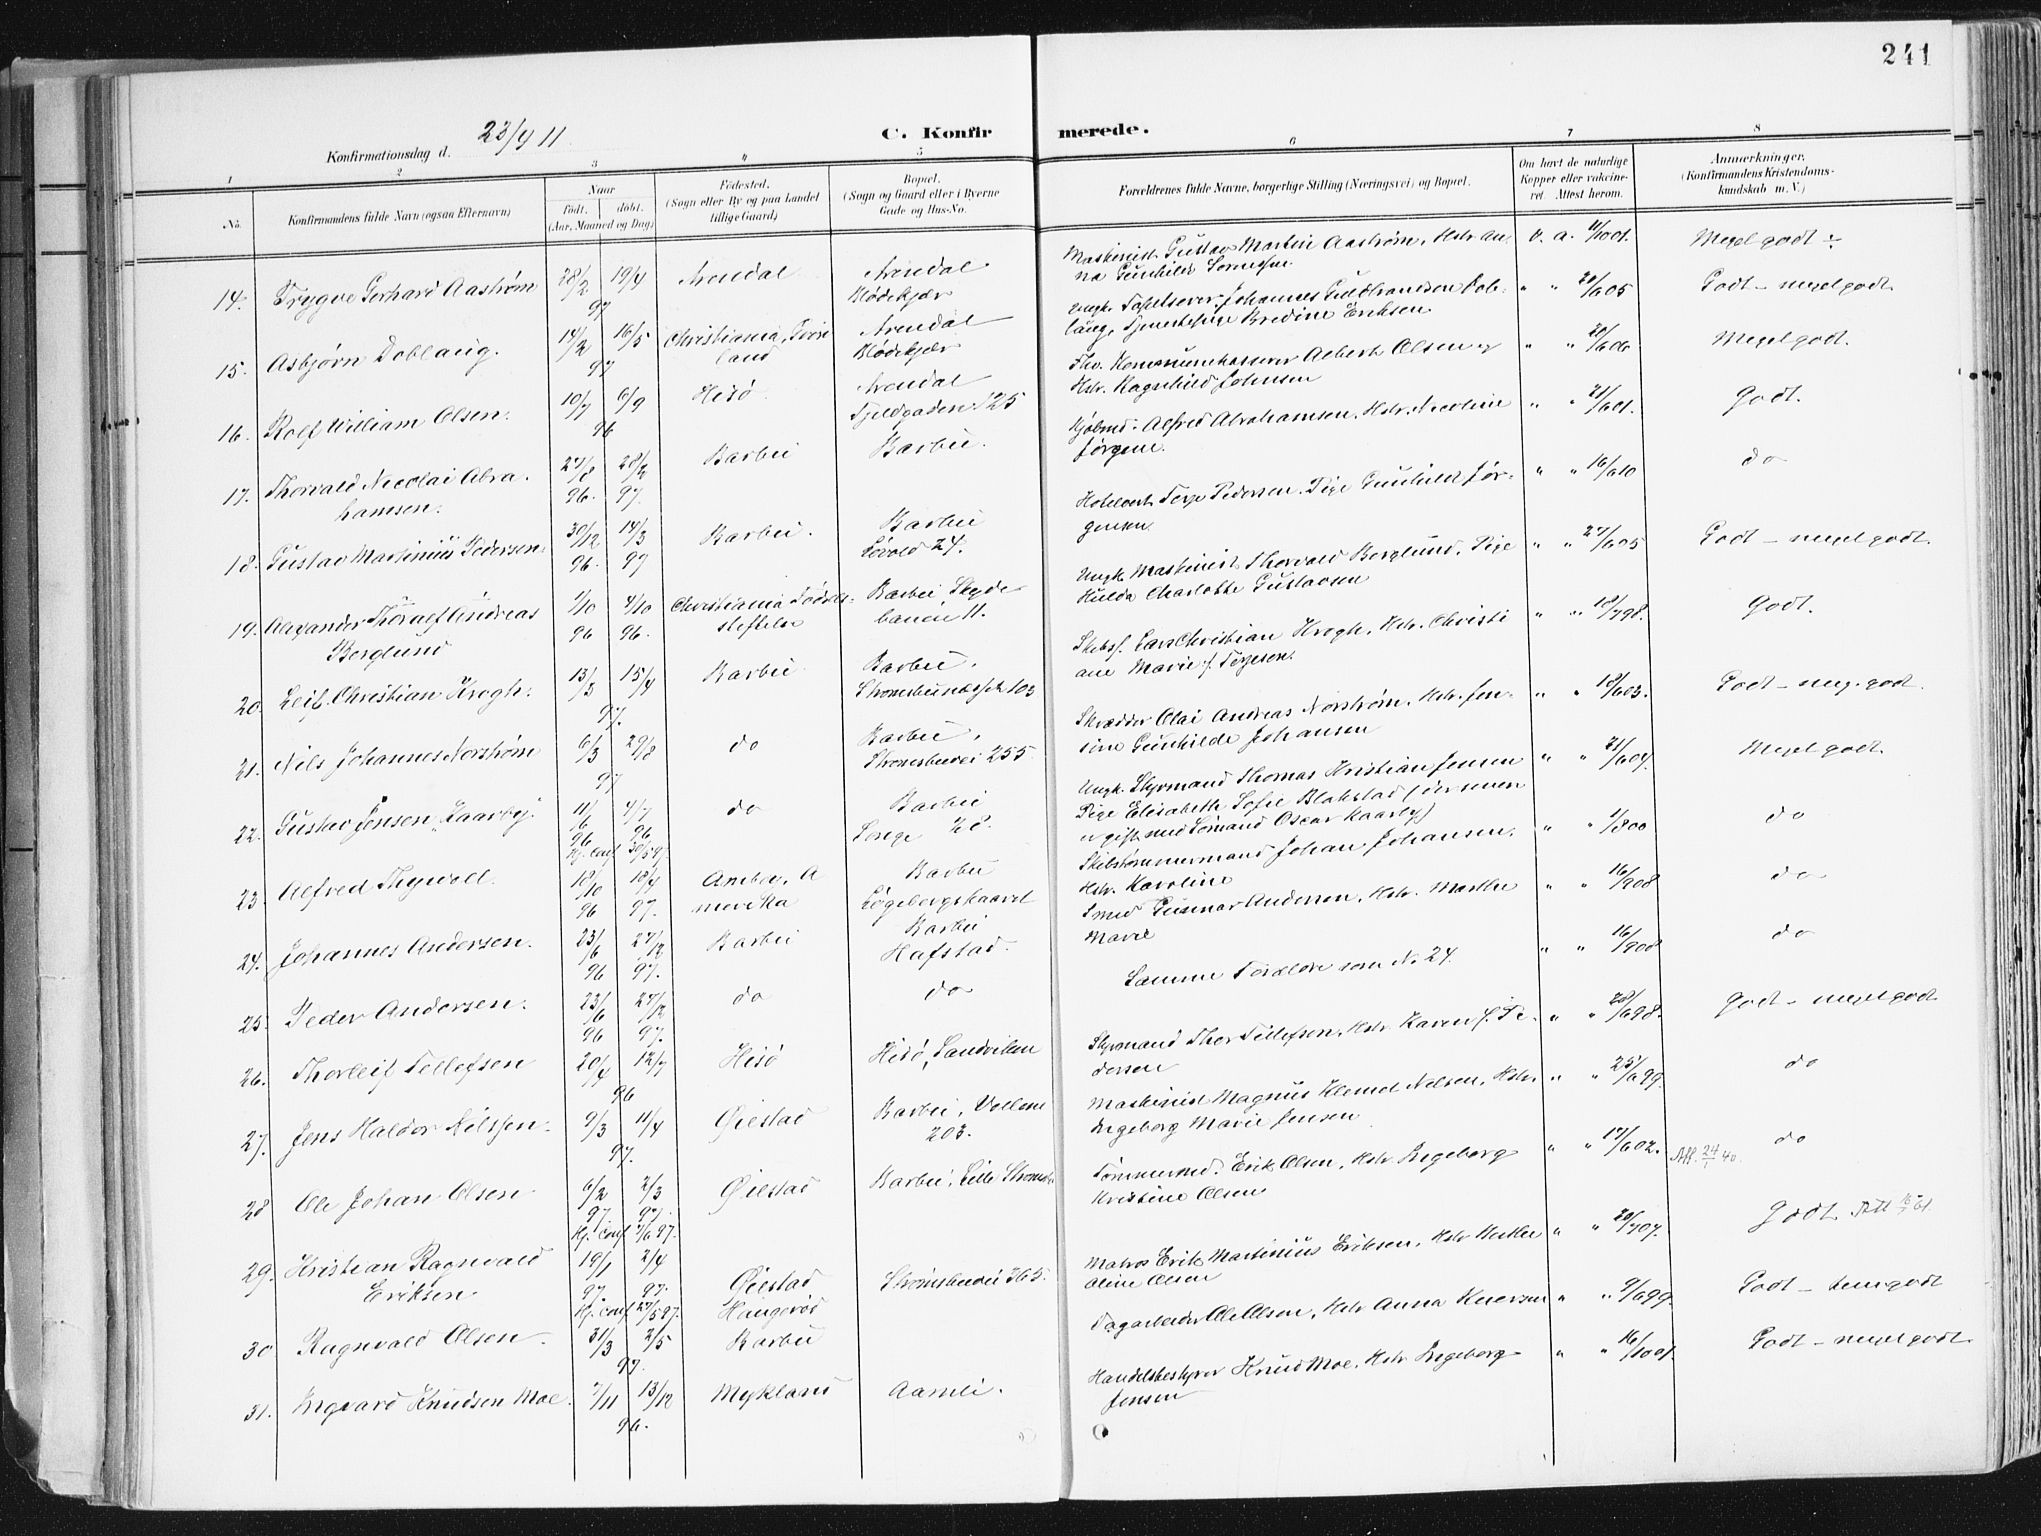 241
Konfirmationsdag d. 23/4 11.
C. Konfirmerede.
1 2 3 4 5 6 7 8
No.
Konfirmandens fulde Navn (ogsaa Efternavn)
Naar født. døbt. (Aar, Maaned og Dag)
Fødested. (Sogn eller By og paa Landet tillige Gaard)
Bopæl. (Sogn og Gaard eller i Byerne Gade og Hus-No.
Forældrenes fulde Navne, borgerlige Stilling (Næringsvei) og Bopæl.
Om havt de naturlige Kopper eller vakcineret. Attest herom.
Anmærkninger. (Konfirmandens Kristendomskundskab m. V.)
14. Trygve Gerhard Aastrøm 28/2 19/4 97 Arendal Arendal Blødekjær Maskinist Gustav Martin Aastrøm, Hstr. Anna Gunhilde v. a. Meget godt
15. Asbjørn Doblaug. 14/2 16/5 97 Christiania, Arendal Blødekjær Ungk. Johannes Guldbrandsen Doblaug, Bredine Eriksen " " 20/6 05 Godt - meget godt
16. Rolf William Olsen. 10/7 6/9 96 Hisø Arendal Fjeldgaden 125 Fhv. Kommunekasserer Albert Olsen og Hstr. Ragnhild Johnsen " " 20/6 06 Meget godt.
17. Thorvald Nicolai Abrahamsen. 27/8 96. 28/2 97. Barbu Barbu. Kjøbmd. Alfred Abrahamsen, Hstr. Nicoline Jørgine. " " 21/6 01. Godt.
18. Gustav Martinius Pedersen. 30/12 96. 14/3 97 Barbu. Barbu 24. Hotelvært Terje Pedersen. Pige Gunhild Jørgensen " " 16/6 10 do
19. Alexander Thoralf Andreas Berglund 1/10 96 4/10 96. Christiania Fødselsstiftelse Barbu Skydebanen 11. Ungk. Maskinist Thorvald Berglund, Pige Hulda Charlotte Gustavsen " " 27/6 05 Godt - meget godt.
20. Leif Christian Krogh. 13/3 15/4 97. Barbu Barbu, 103 Skibsf. Lars Christian Krogh, Hstr. Christiane Marie f. Terjesen. " " 18/7 98. Godt.
21. Nils Johannes Norstrøm 6/3 29/8 97 do Barbu, Strømsbuvei 255 Skrædder Olai Andreas Norstrøm, Hstr. Jensine Gunhilde Johansen " " 18/6 03. Godt - meg. godt.
22. Gustav Jensen Kaarby. 11/6 96 4/7 96 Hj. conf. 30/5 97. do Barbu Longe 28. Ungk. Styrmand Thomas Kristian Jensen Pige Elisabeth Sofie Blakstad (der nu er gift med Sømand Oscar Kaarby) " " 21/6 04. Meget godt.
23. Alfred Thywold. 18/10 96 18/4 97. Amboy, Amerika Barbu Løgebergskaaret Skibstømmermand Johan Johansen, Hstr. Karoline " " 1/8 00 do
24. Johannes Andersen. 23/6 96 27/12 97. Barbu Barbu Hafstad. Smed Gunnar Andersen, Hstr. Marthe Marie " " 16/9 08 do
25. Peder Andersen. 23/6 96 27/12 97. do do Samme Forældre som No. 24. " " 16/9 08 do
26. Thorleif Tellefsen 20/4 12/7 96 Hisø Hisø, Sandviken Styrmand Thor Tellefsen, Hstr. Karen f. Pedersen " " 28/6 98. Godt - meget godt
27. Jens Haldor Nilssen. 9/3 11/4 97. Øiestad Barbu, Vollene 203. Maskinist Magnus Klemet Nilsen, Hstr. Ingeborg Marie Jensen " " 25/6 99. do
28. Ole Johan Olsen 6/2 97 2/3 97. Hj. conf. 7/6 97. Øiestad Barbu, Lille Strømsbu Tømmermd. Erik Olsen, Hstr. Ingeborg Kristine Olsen " " 17/6 02. Att. 24/1 40. do
29. Kristian Ragnvald Eriksen 19/1 97. 2/4 97. Hj. conf. 27/5 97. Øiestad Haugerød Strømsbuvei 365. Matros Erik Martinius Eriksen, Hstr. Aline Olsen " " 20/7 07. Godt.
30. Ragnvald Olsen. 31/3 2/5 97. Barbu Dagarbeider Ole Olsen, Hstr. Anna Iversen " " 9/6 99. Godt - temgodt
31. Ingvard Knudsen Moe. 7/11 13/12 96. Mykland Aamli. Handelsbestyrer Knud Moe, Hstr. Ingeborg Jensen " " 16/10 01. Godt - meget godt